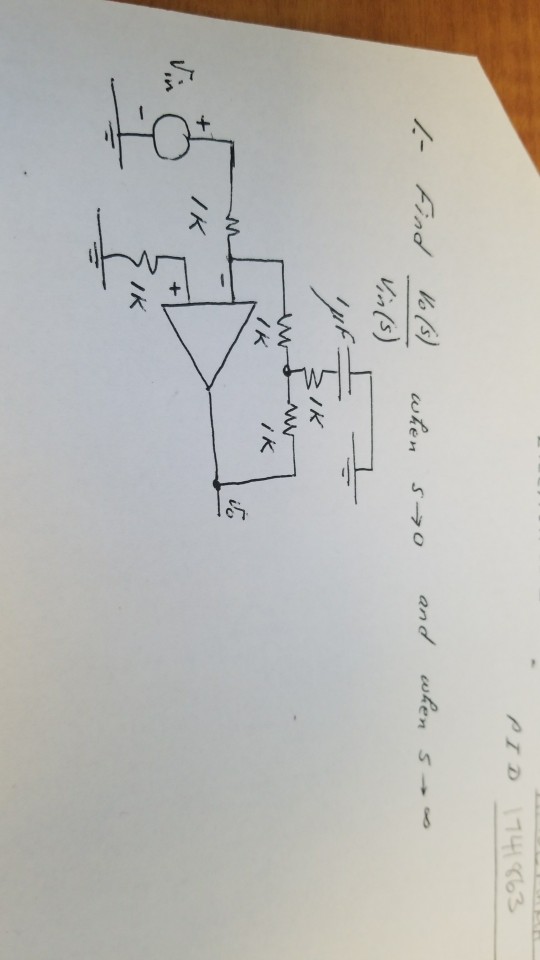 PID 1741863
1.- Find Vo(s)/Vin(s) when s→0 and when s→∞
1μF
1K
1K
1K
Vin
+
-
1K
-
+
1K
vo